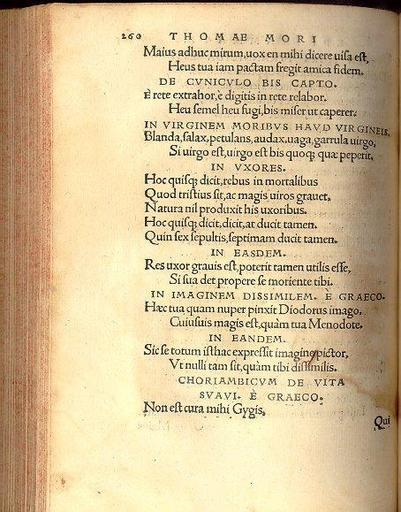 260 THOMAE MORI
Maius adhuc mirum, uox en mihi dicere uisa est,
Heus tua iam pactam fregit amica fidem.
DE CVNICVLO BIS CAPTO.
È rete extrahor, è digitis in rete relabor.
Heu semel heu fugi, bis miser ut caperer.
IN VIRGINEM MORIBVS HAVD VIRGINEIS.
Blanda, salax, petulans, audax, uaga, garrula uirgo,
Si uirgo est, uirgo est bis quoq; quæ peperit.
IN VXORES.
Hoc quisq; dicit, rebus in mortalibus
Quod tristius sit, ac magis uiros grauet,
Natura nil produxit his uxoribus.
Hoc quisq; dicit, dicit, at ducit tamen.
Quin sex sepultis, septimam ducit tamen.
IN EASDEM.
Res uxor grauis est, poterit tamen utilis esse,
Si sua det propere se moriente tibi.
IN IMAGINEM DISSIMILEM. È GRAECO.
Hæc tua quam nuper pinxit Diodorus imago,
Cuiusuis magis est, quàm tua Menodote.
IN EANDEM.
Sic se totum isthac expressit imagine pictor,
Vt nulli tam sit, quàm tibi dissimilis.
CHORIAMBICVM DE VITA
SVAVI. È GRAECO.
Non est cura mihi Gygis,
Qui